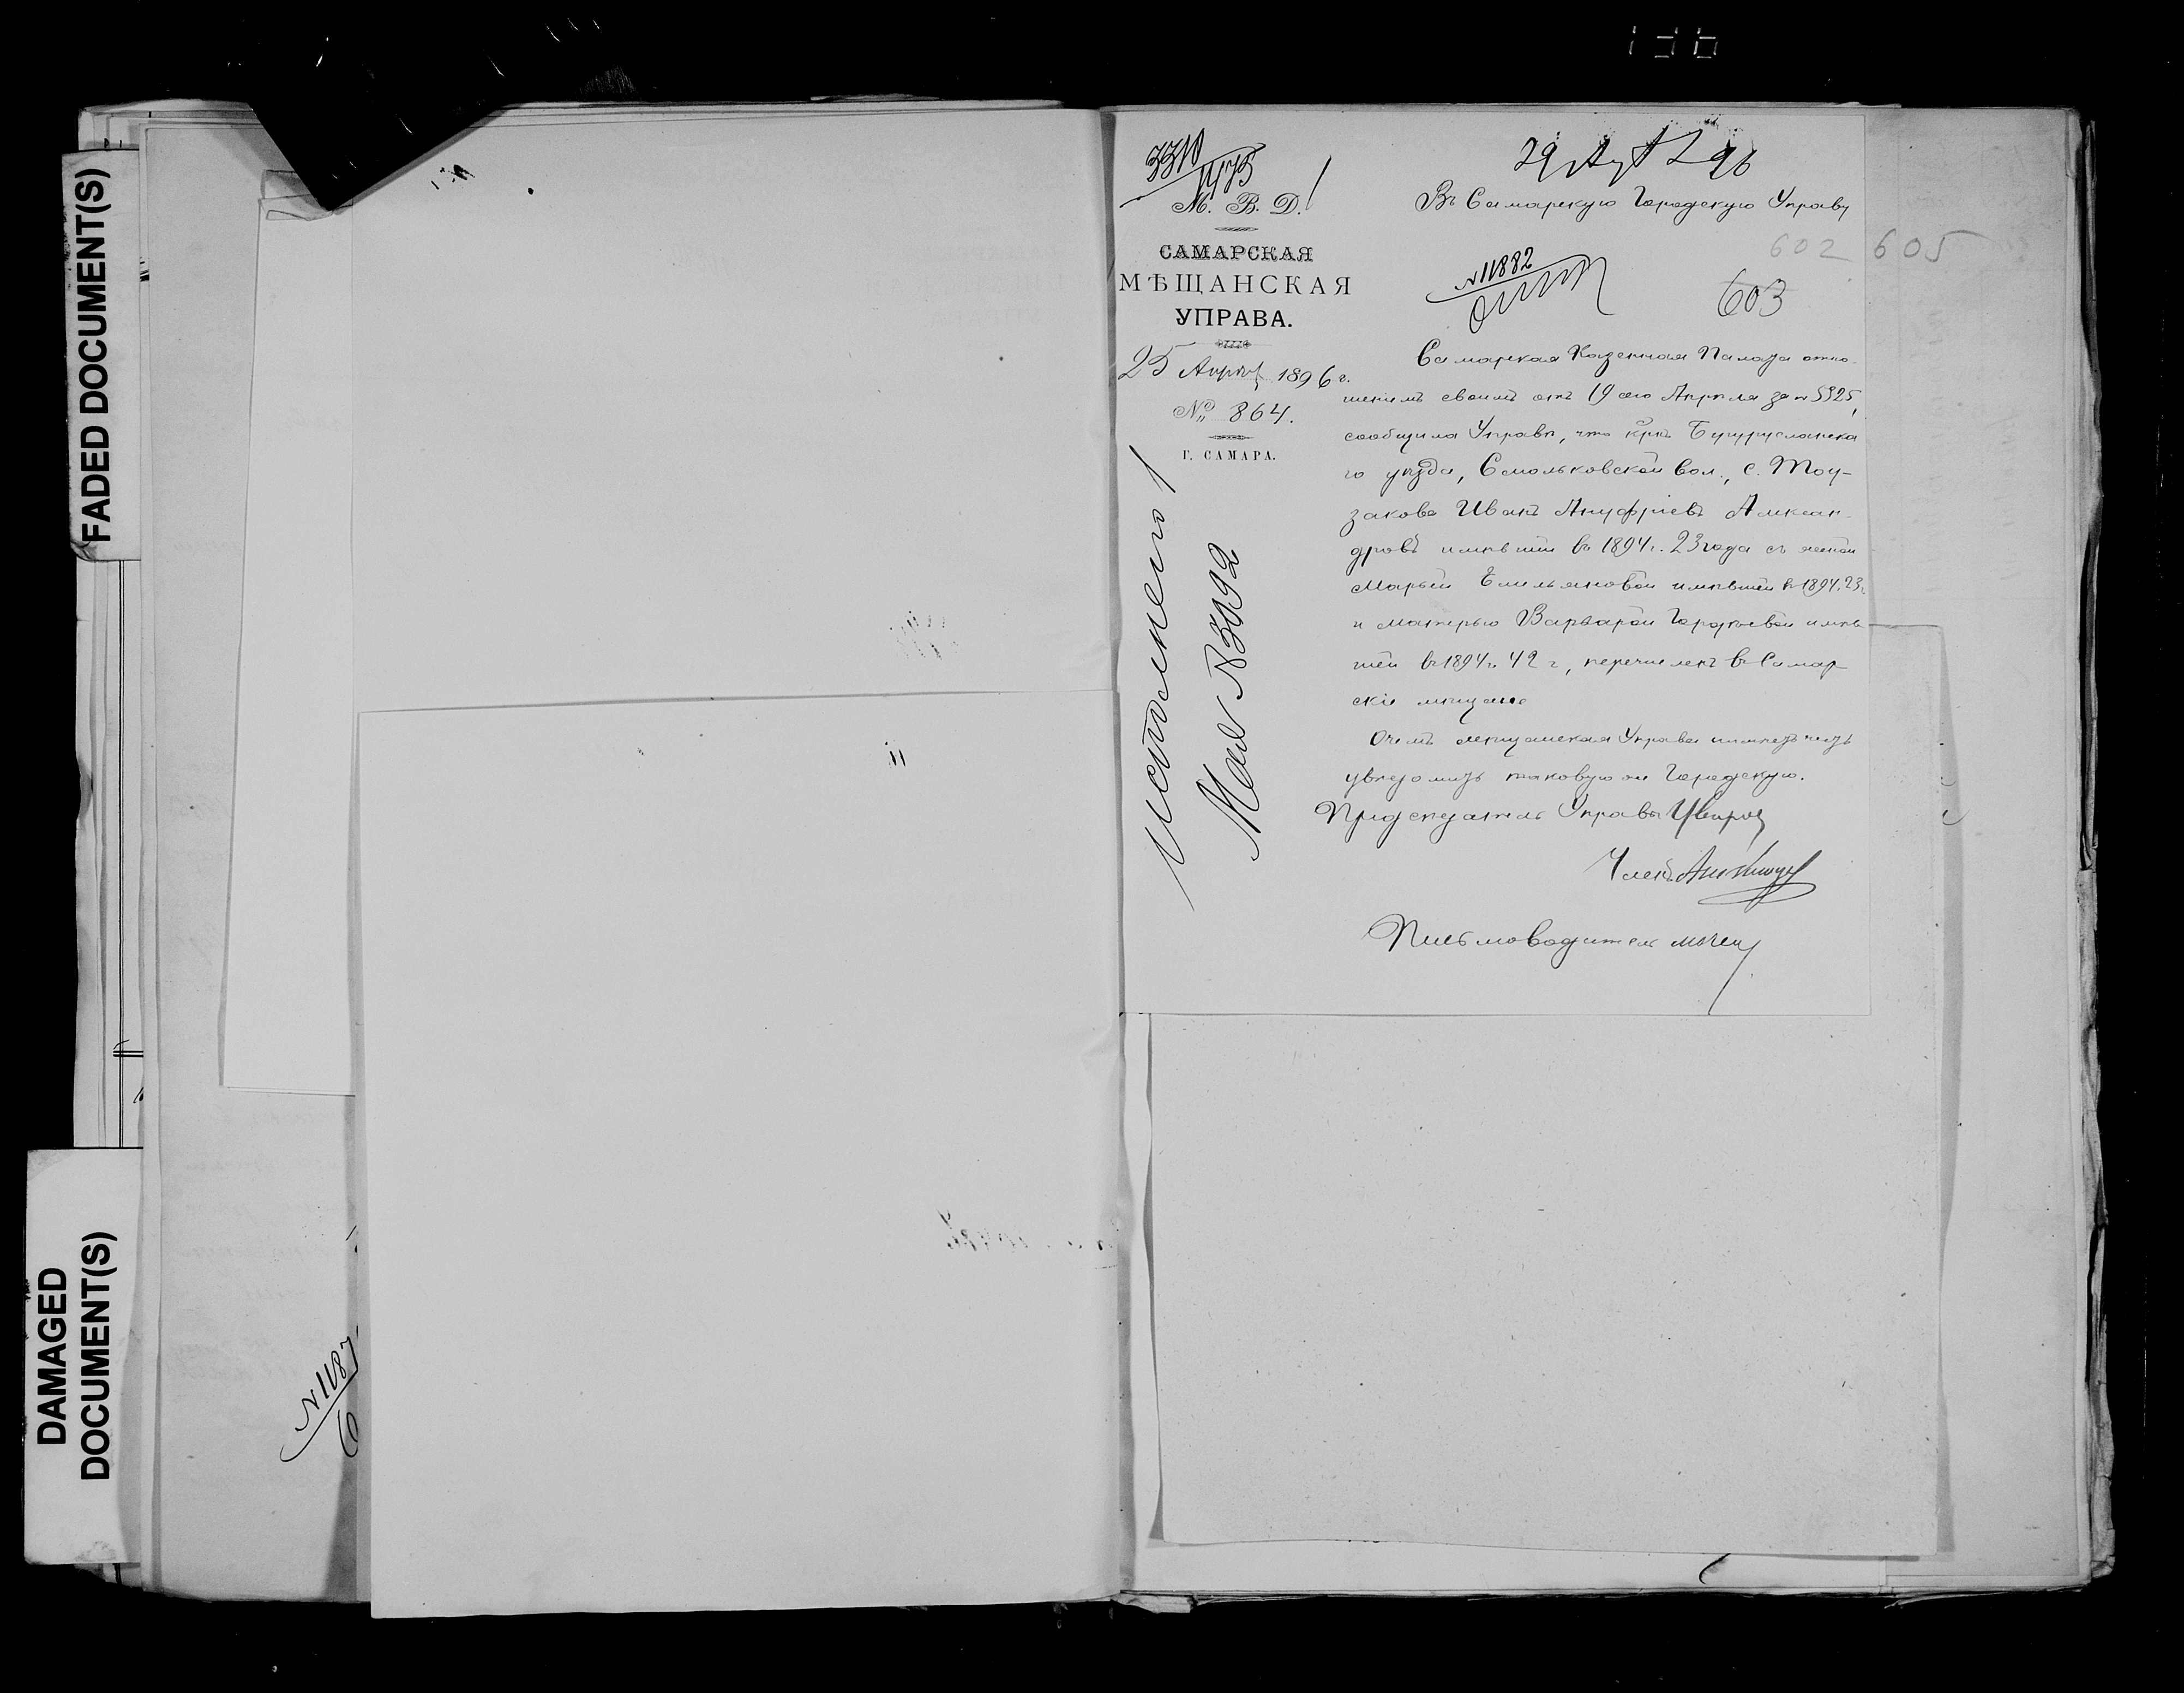 FADED DOCUMENT(S)
DAMAGED
DOCUMENT(S)
N 1187
3310
1473
М. В. Д.
САМАРСКАЯ
МѢЩАНСКАЯ
УПРАВА.
25 Апрѣл 1896 г.
№ 864.
Г. САМАРА.
Исполнено
Мая № 3092
29 Ап 96
Въ Самарскую Городскую Управу
602 605
N 11882
603
Самарская Казенная Палата отно-
шенiемъ своимъ отъ 19 сего Апрѣля за N 5325,
сообщила Управѣ, что крнъ Бугурусланска
го уѣзда, Смольковской вол., с. Тоу-
закова Иванъ Ануфрiевъ Алексан-
дровъ имѣвшiй въ 1894 г. 23 года съ женой
Марьей Емельяновой имѣвшей въ 1894 г. 23 г.
и матерью Варварой Гордѣевой имѣв
шей въ 1894 г. 42 г, перечисленъ въ Самар-
скiе мѣщане
О чемъ мѣщанская Управа имѣетъ честь
увѣдомить таковую же Городскую.
Предсѣдатель Управы
Членъ
Письмоводитель